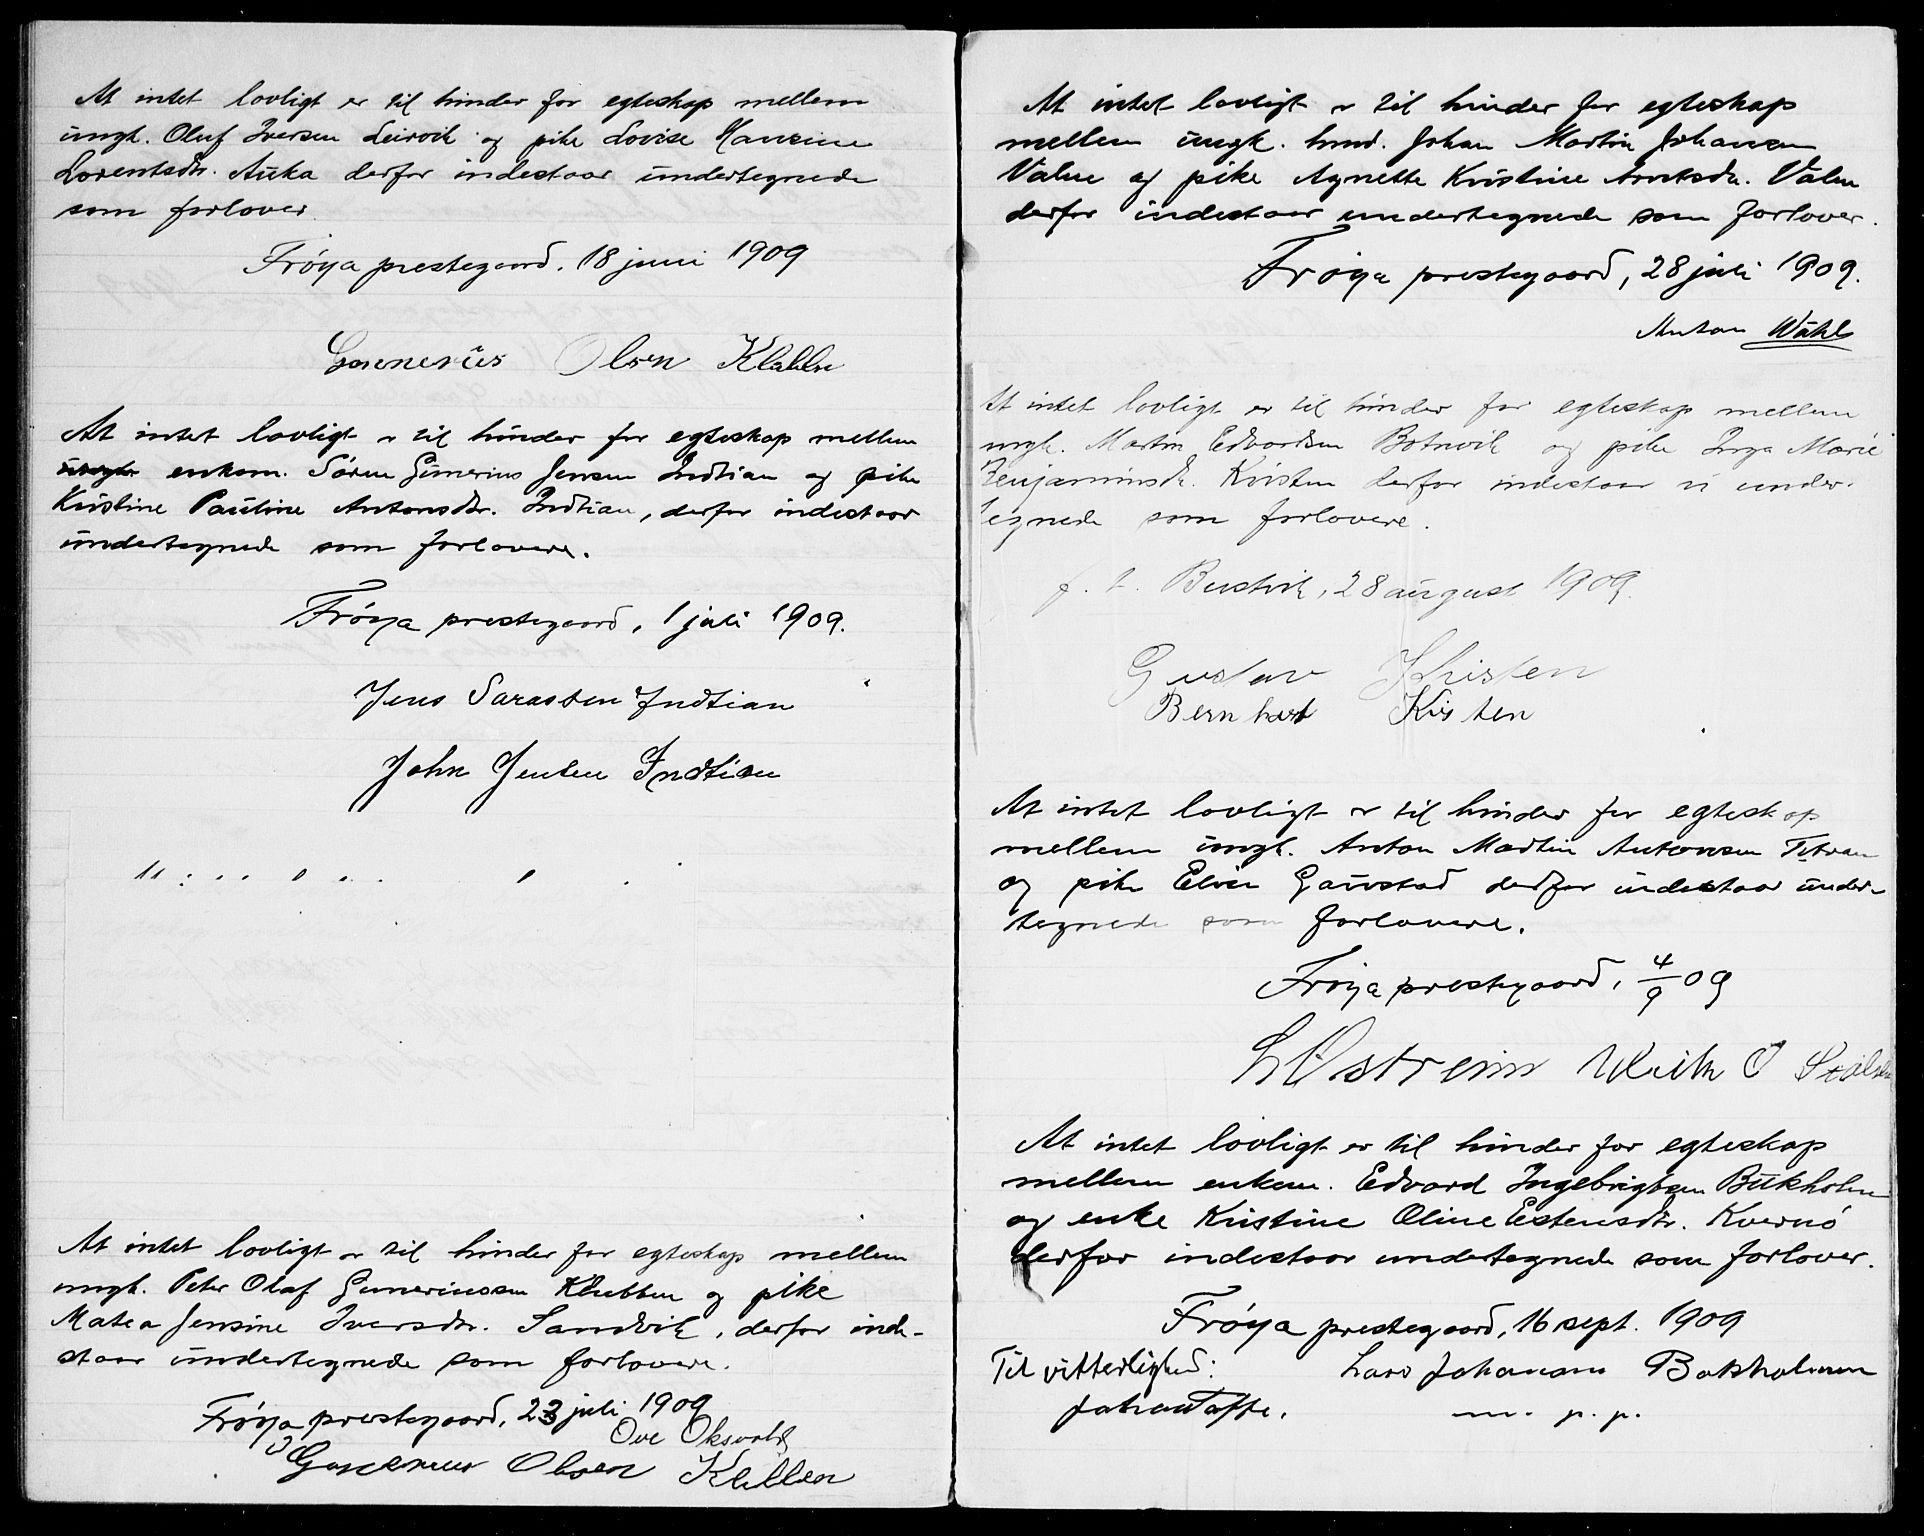 At intet lovligt er til hinder for egteskap mellem
ungk. Oluf Iversen Leirvik og pike Lovise Hansine
Lorentsdtr. Auka derfor indestaar undertegnede
som forlover.
Frøya prestegaard, 18 juni 1909
Gunerius Olsen Klubben
At intet lovligt er til hinder for egteskap mellem
enkem. Søren Gunerius Jensen Indtian og pike
Kristine Pauline Antonsdtr. Indtian, derfor indestaar
undertegnede som forlovere.
Frøya prestegaard, 1 juli 1909.
Jens Indtian
John Jensen Indtian
At intet lovligt er til hinder for egteskap mellem
ungk. Peter Olaf Guneriussen Klubben og pike
Matea Jensine Iversdtr. Sandvik, derfor inde-
staar undertegnede som forlovere.
Frøya prestegaard, 23 juli 1909
Ove Oksvold
Gunerius Olsen Klubben
At intet lovligt er til hinder for egteskap
mellem ungk. Johan Martin Johansen
Valen og pike Agnette Kristine Arntsdtr. Valen
derfor indestaar undertegnede som forlover.
Frøya prestegaard, 28 juli 1909.
Anton Wåhl
At intet lovligt er til hinder for egteskap mellem
ungk. Martin Edvardsen Botnvik og pike Inga Marie
Benjaminsdtr. Kristen derfor indestaar vi under-
tegnede som forlovere.
p. t. Bustvik, 28 august 1909.
Gustav Khisten
Bernhart Kisten
At intet lovligt er til hinder for egteskap
mellem ungk. Anton Martin Antonsen Titran
og pike Elise Gaustad derfor indestaar under-
tegnede som forlovere.
Frøya prestegaard, 4/9 09
At intet lovligt er til hinder for egteskap
mellem enkem. Edvard Ingebrigtsen Bukholm
og enke Kristine Oline Estensdtr. Kvernø
derfor indestaar undertegnede som forlover.
Frøya prestegaard, 16 sept. 1909
Til vitterlighed: Lars Johansen Bokholmen
Johan Tofte. m. p. p.